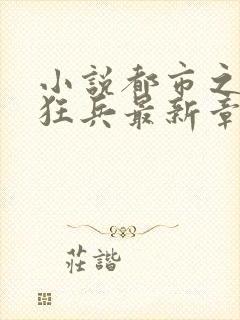 小説都市之
狂兵最新章
莊諧